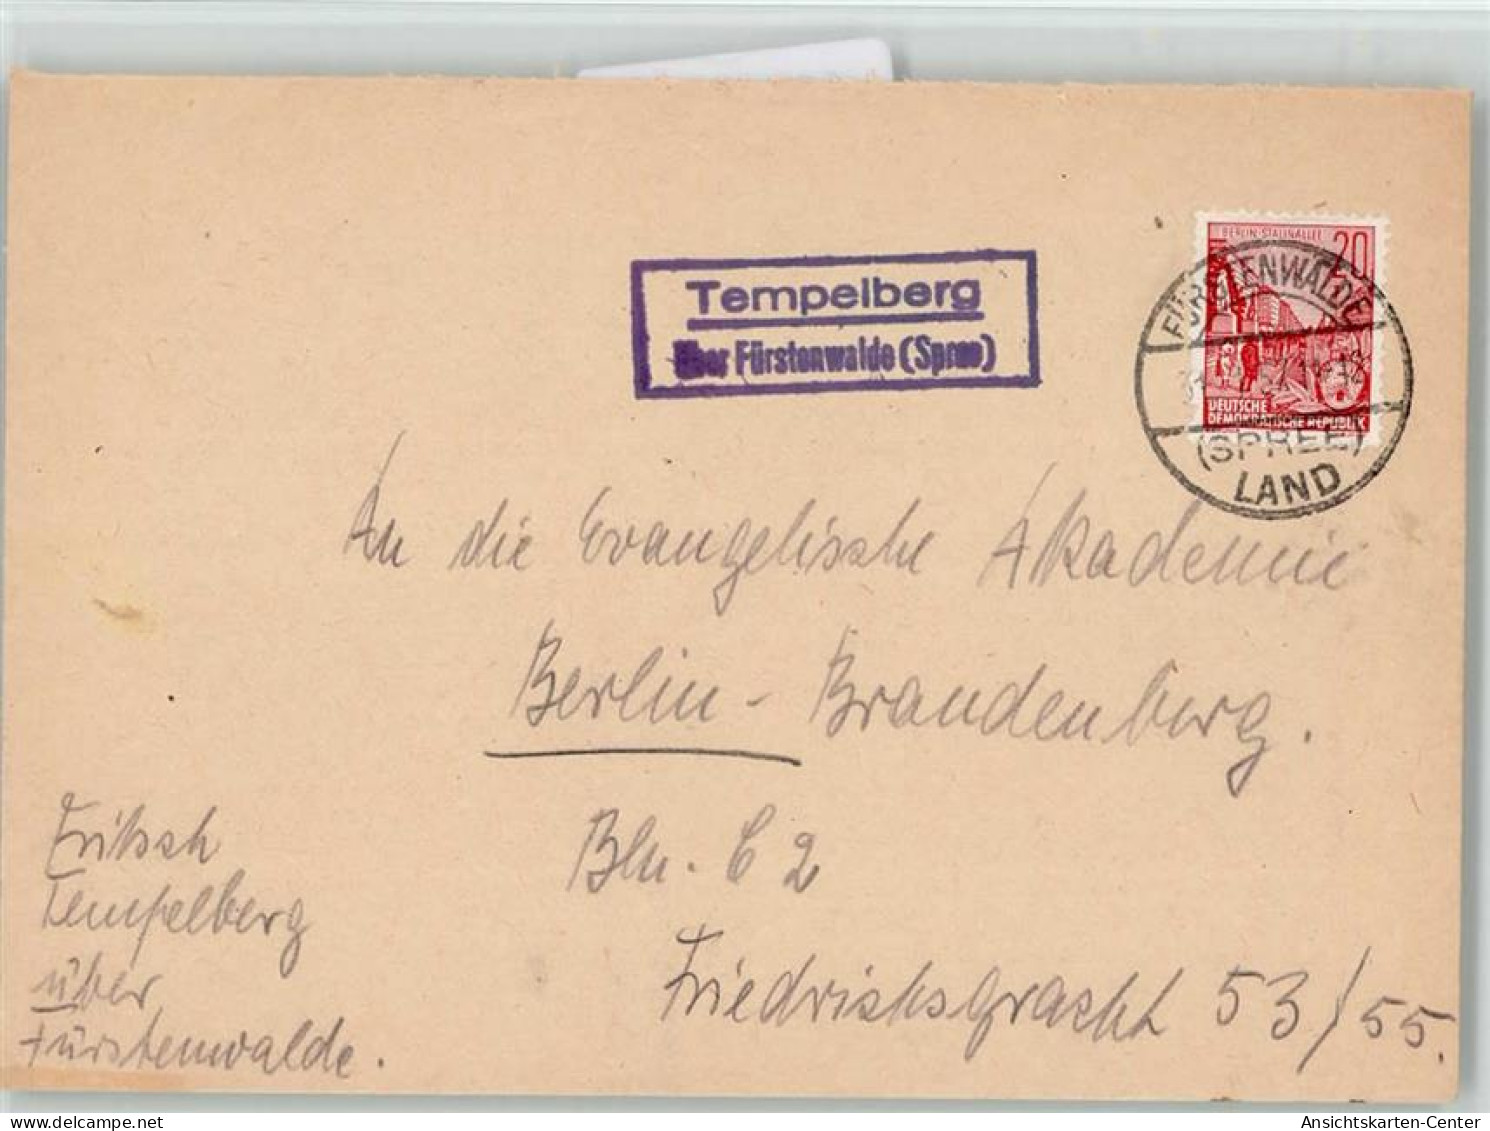 Tempelberg
über Fürstenwalde (Spree)
BERLIN-STALINALLEE
20
DEUTSCHE
DEMOKRATISCHE REPUBLIK
FÜRSTENWALDE
(SPREE)
LAND
An die Evangelische Akademie
Berlin - Brandenberg.
Bln. C 2
Friedrichsgracht 53/55.
Fritsch
Tempelberg
über
Fürstenwalde.
Ansichtskarten-Center